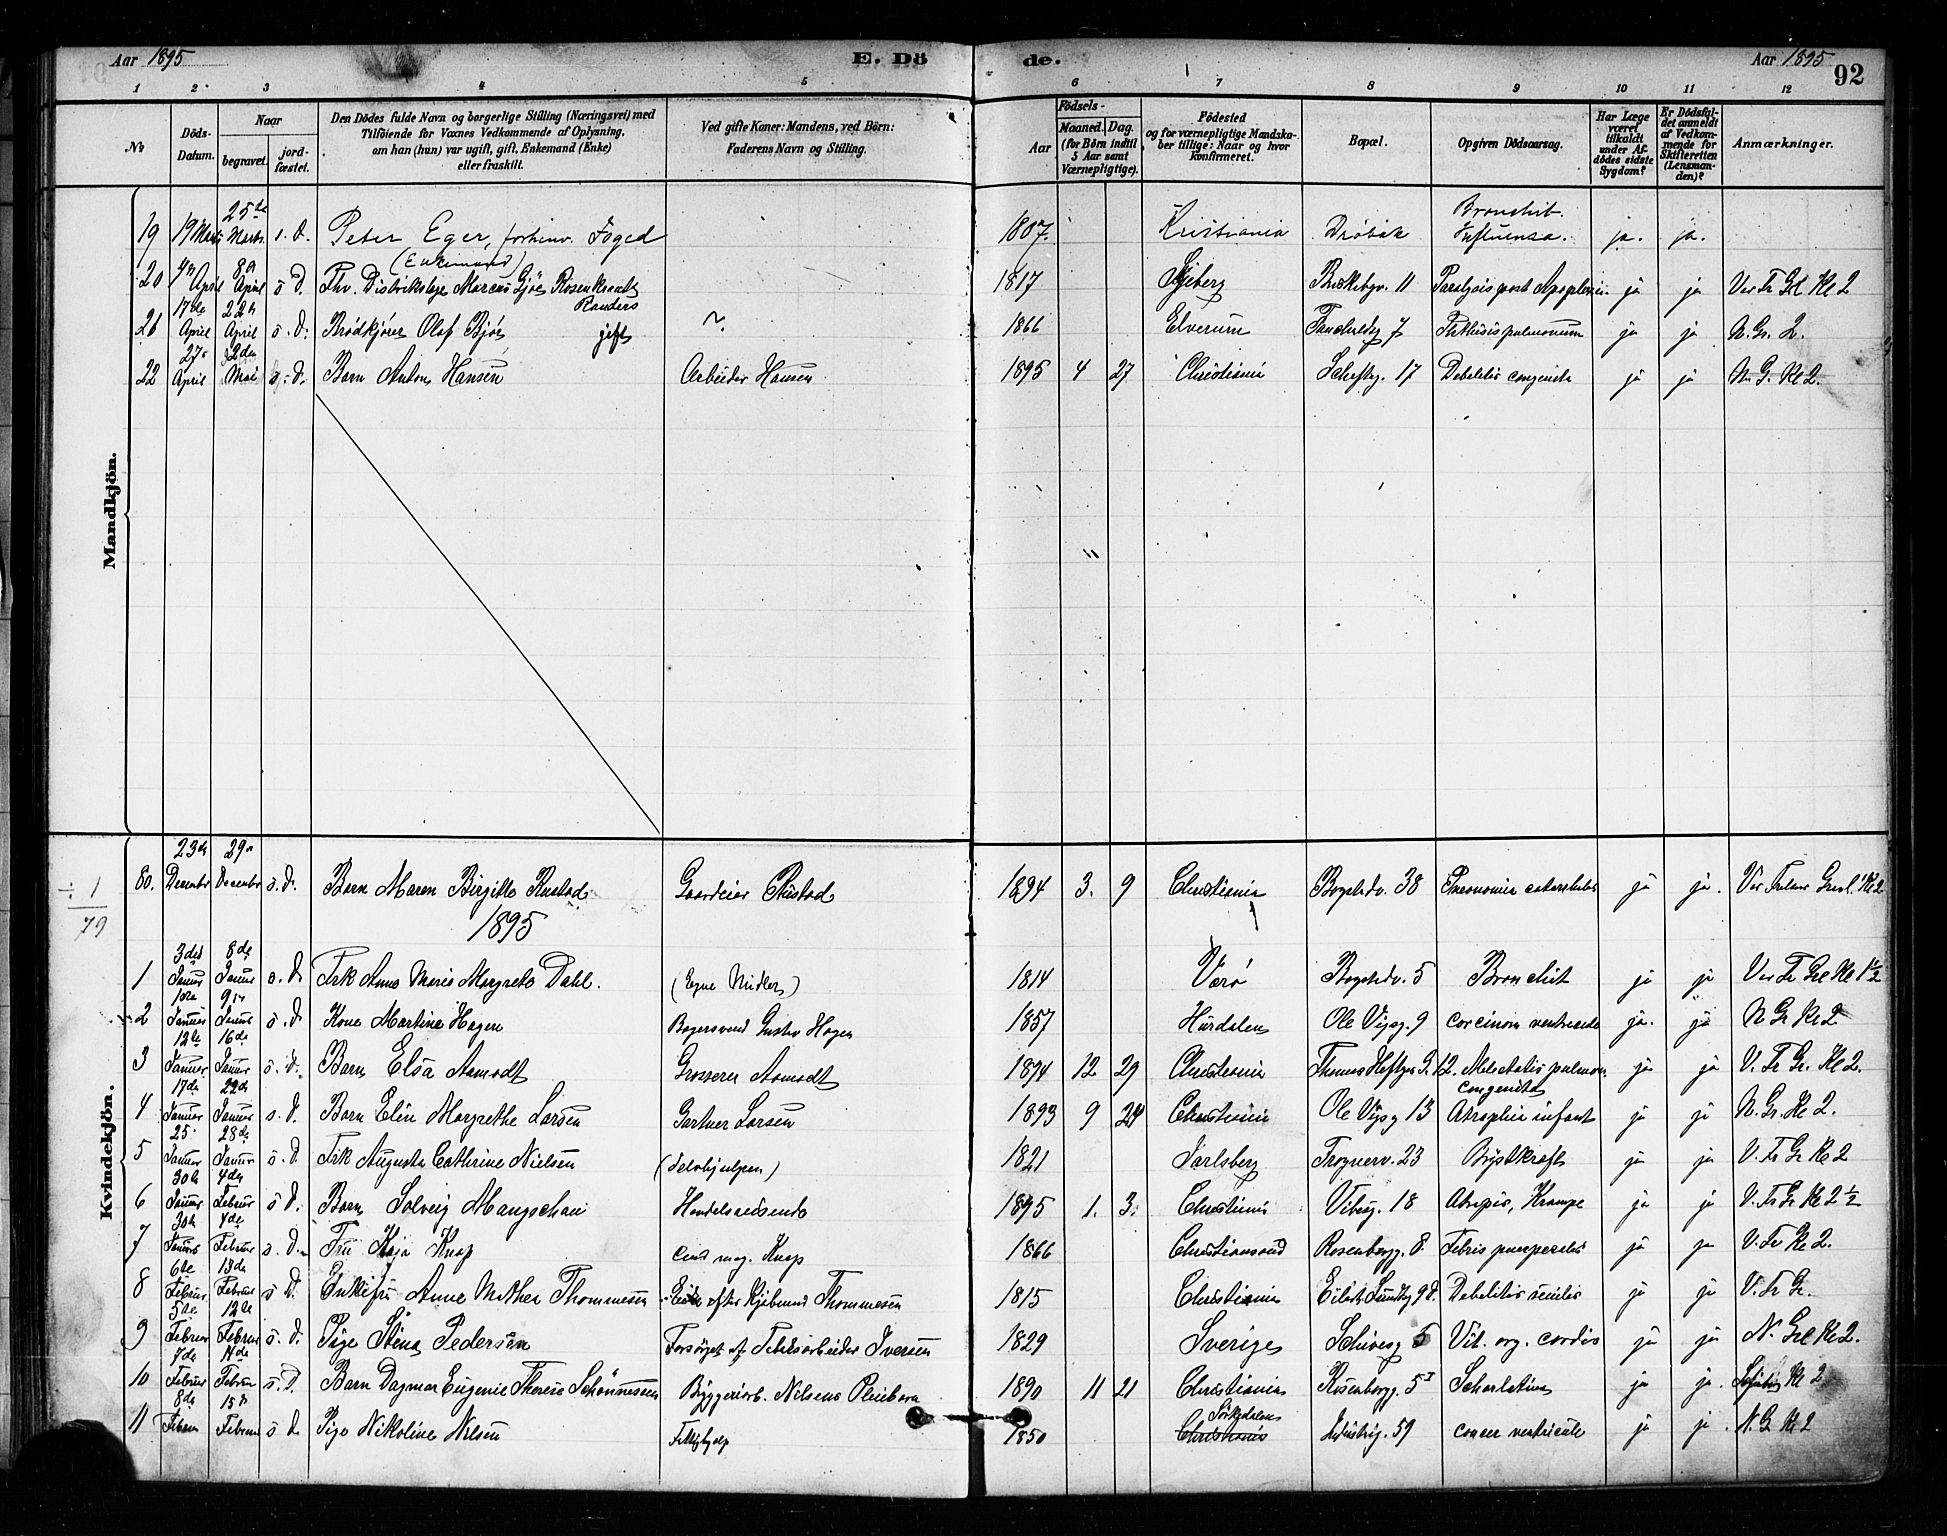 Aar 1895 E. Dö de. Aar 1895 92
1 2 3 4 5 6 7 8 9 10 11 12
No
Döds-Datum.
Naar
begravet.
jord-fæstet.
Den Dödes fulde Navn og borgerlige Stilling (Næringsvei) med
Tilföiende for Voxnes Vedkommende af Oplysning,
om han (hun) var ugift, gift, Enkemand (Enke)
eller fraskilt.
Ved gifte Koner: Mandens, ved Börn:
Faderens Navn og Stilling.
Födsels-
Aar
Maaned. Dag.
(for Börn indtil
5 Aar samt
Værnepligtige).
Födested
og for værnepligtige Mandska-
ber tillige: Naar og hvor
konfirmeret.
Bopæl.
Opgiven Dödsaarsag.
Har Læge
været
tilkaldt
under Af-
dödes sidste
Sygdom?
Er Dödsfal-
det anmeldt
af Vedkom-
mende for
Skifteretten
(Lensman-
den)?
Anmærkninger.
Mandkjön.
19 19 Marts 25de Marts s. d. Peter Eger, forhenv. Foged (Enkemand) 1807. Kristiania Dröbak Bronchit. Influenza. ja. ja.
20 April 8d April s d. Fhv. Distriktslæge Marcus Gjöe Rosenkrantz Randers 1817 Skjeberg 11 Paralysis post Apoplexia ja ja Vor Fr Grl Kl 2
21 17de April 22de April s. d. Brödkjörer Olaf Björ gift ~. 1866 Elverum 7 Phthisis pulmonum ja ja N. Gr. 2.
22 27 April 2den Mai s. d. Barn Anton Hansen Arbeider Hansen 1895 4 27 Christiania 17 Debilitas congenita ja ja N. G. Kl 2.
Kvindekjön.
÷ 1
79
80. 23de December 29 December s. d. Barn Maren Birgitte Rustad Gaardeier Rustad 1894 3. 9 Christiania Bogstadv. 38 Pneumonia catarrhalis ja ja. Vor Frelser Gravl. Kl 2
1895
1 3die Januar 8de Januar s. d. Frk Anna Marie Margrete Dahl. (Egne Midler) 1814 Bogstadv. 5 Bronchit ja ja Vor Fr Grl Kl 1½
2 Januar Januar s. d Kone Martine Hagen Bagersvend Gustav Hagen 1857 Hurdalen Ole Vigsg. 9 ja. ja N Gr Kl 2
3 12te Januar 16de Januar s. d. Barn Elsa Aamodt Grosserer Aamodt 1894 12 29 Christiania Thomas Heftyes G. 12. Atelectasis pulmon. congenita ja ja V. Fr Gr. Kl 2.
4 17de Januar 22de Januar s. d. Barn Elin Margrethe Larsen Gartner Larsen 1893 9 24 Christiania Ole Vigsg 13 Atrophia infant ja ja N. Gr. Kl 2.
5 25 Januar 28de Januar s. d Frk Augusta Cathrine Nielsen (Selvhjulpen) 1821 Jarlsberg Frognerv. 23 Brystkræft ja ja V. Fr Gr Kl 2
6 30te Januar 4de Februar s d. Barn Solveig Mangschau Handelsreisende 1895 1. 3. Christiania Vibesg. 18 Krampe ja ja V. Fr Gr Kl 2½
7 30te Januar 4de Februar s. d. Fru Kaja Knap cand mag. Knap 1866 Christianssund Rosenborgg. 8. Febris puerperalis ja ja V. Fr Kl 2.
8 6te Februar 13de Februar s d. Enkefru Anne Mathea Thommesen Enke efter Kjöbmand Thommesen 1815 Christiania Eilert Sundtsg 9 d. Debilitas senilis ja ja V. Fr Gr.
9 5te Februar 12te Februar s. d. Pige Stina Pedersen Forsörget af Iversen 1829 Sverige 5 Vit. org. cordis ja ja N. Grl Kl 2.
10 7de Februar 14de Februar s. d. Barn Dagmar Eugenie Therese Bryggeriarb. Nilsens Pleiebarn 1890 11 21 Christiania Rosenborgg. 5 I Scharlatina ja ja. Kl 2
11 8de Februar 15de Februar s d Pige Nikoline Nilsen Fattighjelp 1850 Sörkedalen Christiania Industrig. 59 cancer ventriculi ja ja. N. G Kl 2